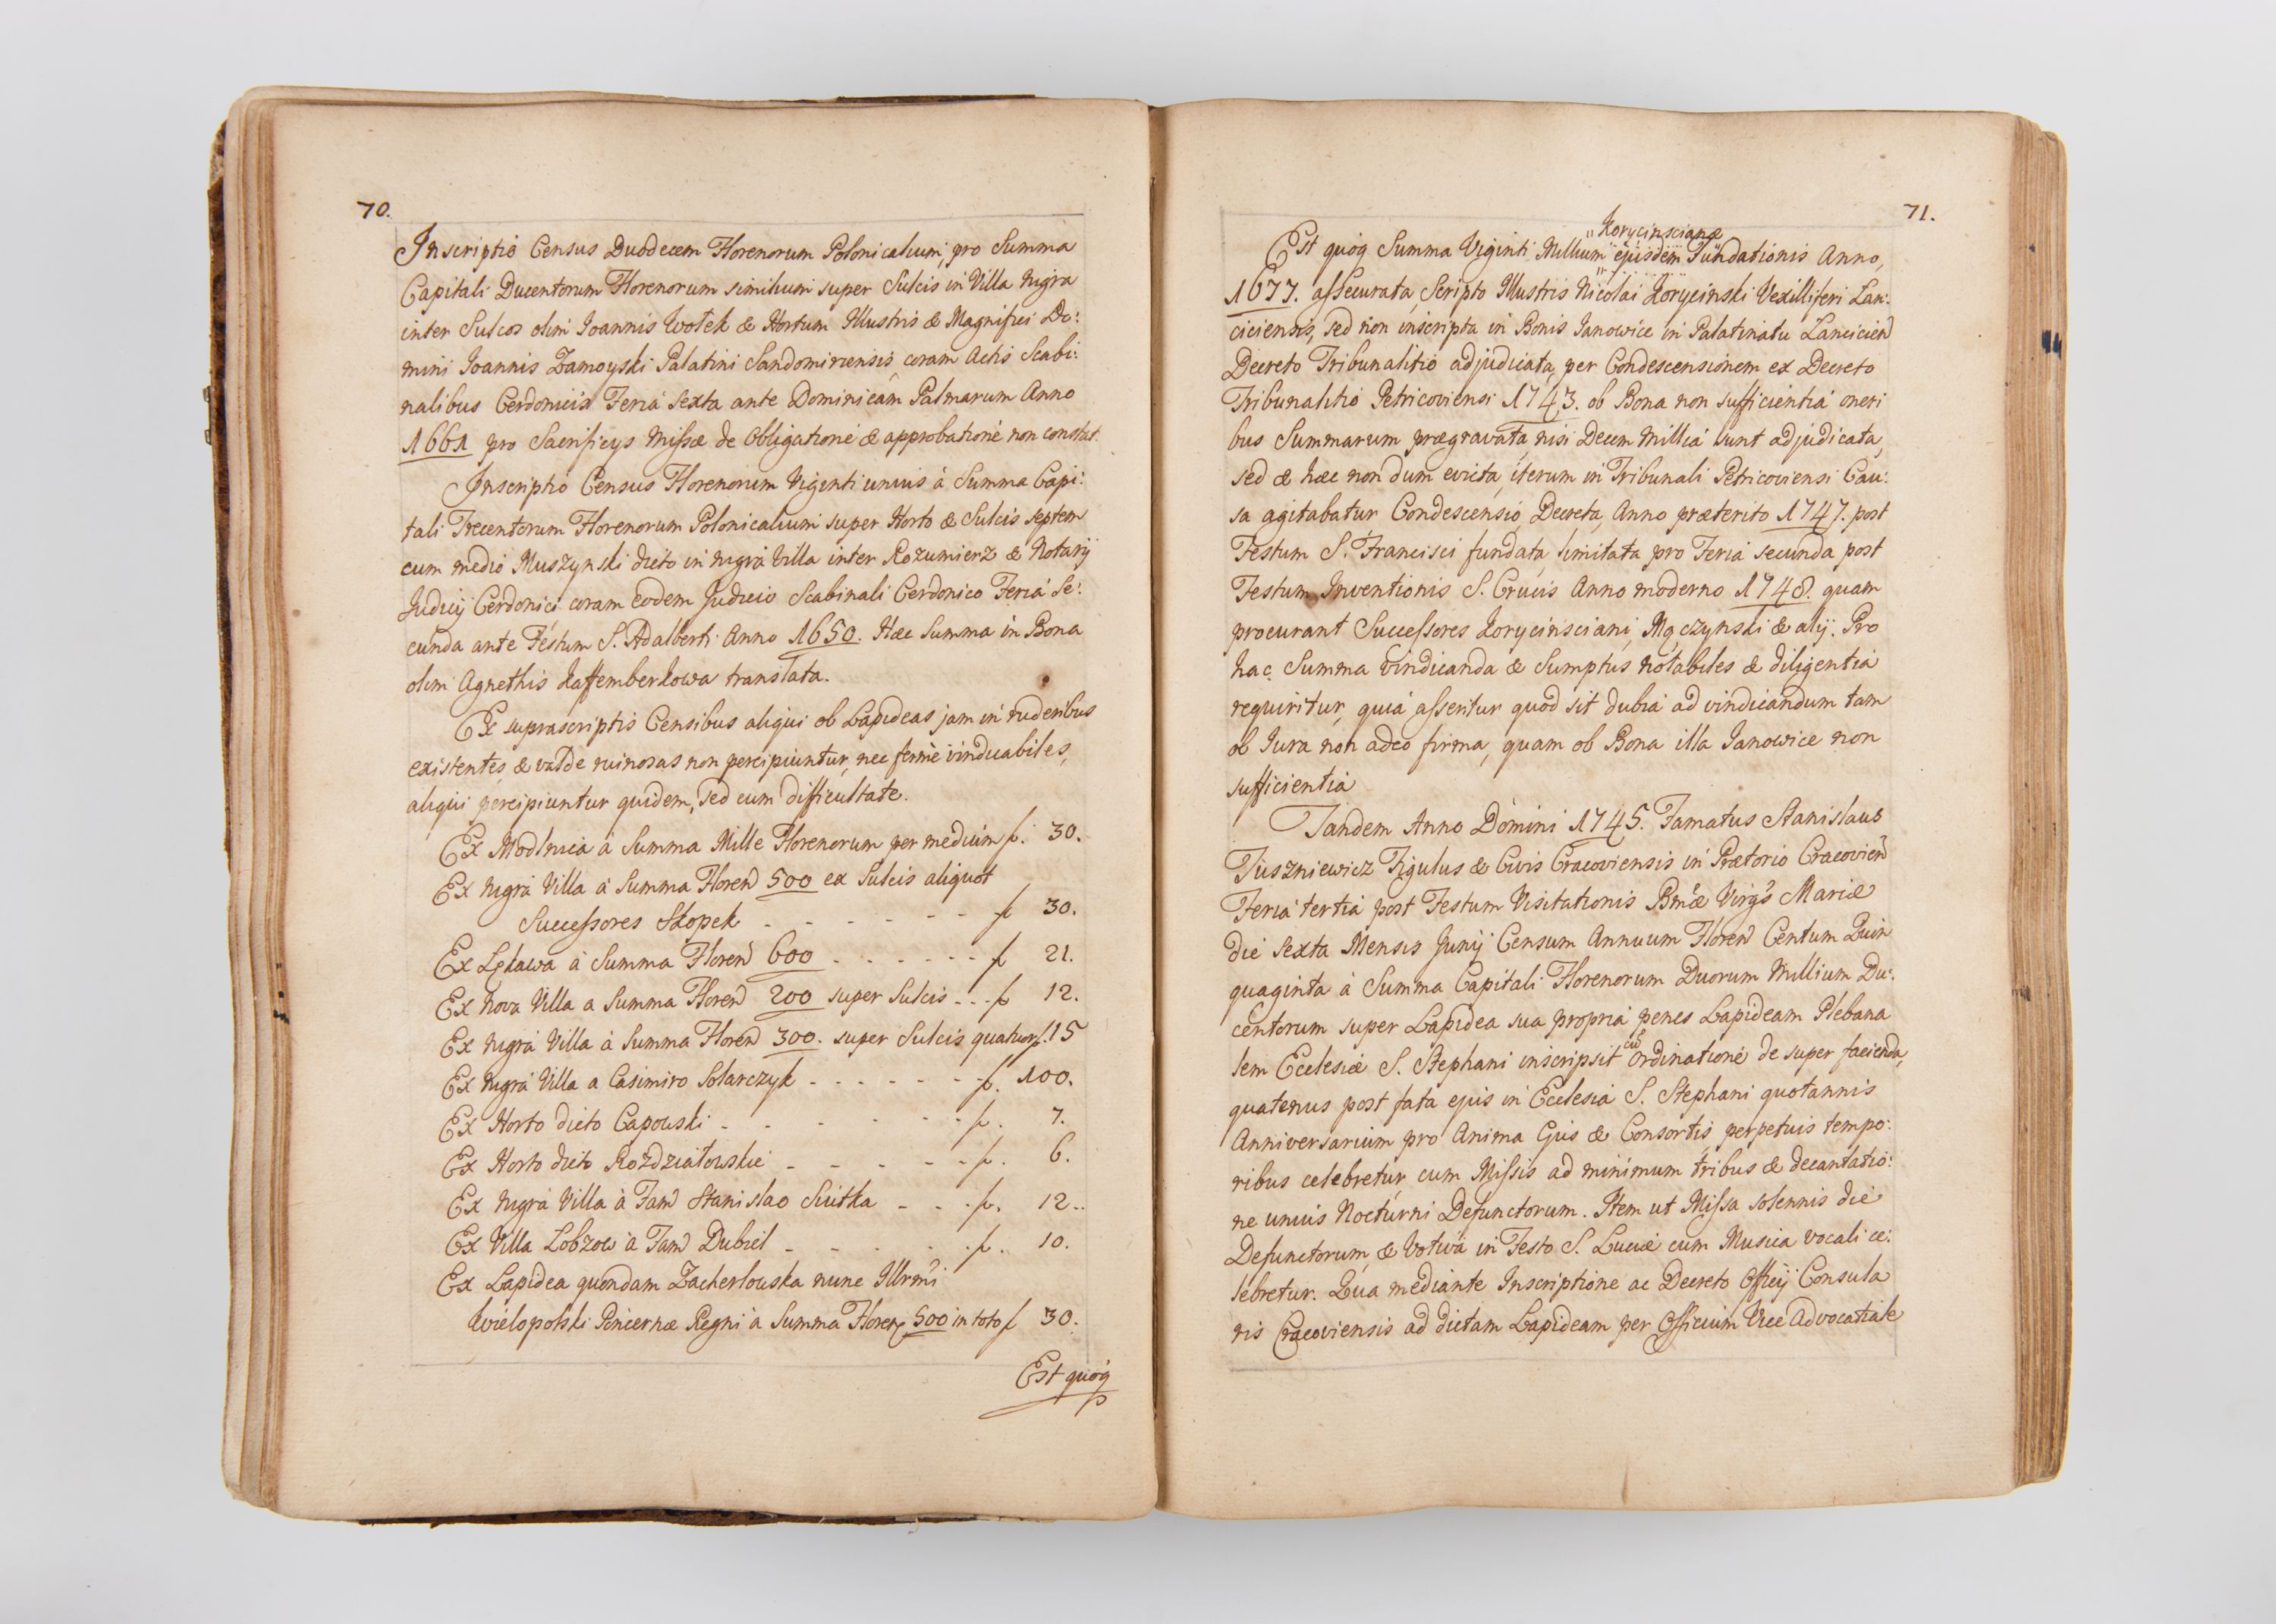 70.
Inscriptio Census Duodecem Florenorum Polonicalium, pro Summa
Capitali Ducentorum Florenorum similium super Sulcis in Villa Nigra
inter Sulcos olim Joannis Wołek & Hortum Illustris & Magnifici Do:
mini Joannis Zamoyski Palatini Sandomiriensis coram Actis Scabi:
nalibus Cerdonicis Feria sexta ante Dominicam Palmarum Anno
1661 pro Sacrificijs Missæ de Obligatione & approbatione non constat.
Inscriptio Census Florenorum Viginti unius à Summa Capi:
tali Trecentorum Florenorum Polonicalium super Horto & Sulcis septem
cum medio Muszynski dicto in nigra Villa inter Rozumierz & Notarij
Judicij Cerdonici coram eodem Judicio Scabinali Cerdonico Feria Se:
cunda ante Festum S. Adalberti Anno 1650. Hæc Summa in Bona
olim Agnethis Kaffemberkowa translata.
Ex suprascriptis Censibus aliqui ob Lapideas jam in ruderibus
existentes & valde ruinosas non percipiuntur, nec fermè vindicabiles,
aliqui percipiuntur quidem, sed cum difficultate.
Ex Modlnica à Summa Mille Florenorum per medium f. 30.
Ex nigra Villa à Summa Floren 500 ex Sulcis aliquot
Successores Skopek - - - - - - - f 30.
Ex Łękawa à Summa Floren 600 - - - - - - f 21.
Ex nova Villa a Summa Floren 200 super Sulcis - - - f 12.
Ex nigra Villa à Summa Floren 300. super Sulcis quatuor f. 15
Ex nigra Villa a Casimiro Solarczyk - - - - - - - f. 100.
Ex Horto dicto Capowski - - - - - - f. 7.
Ex Horto dicto Rozdziałowskie - - - - - f. 6.
Ex nigra Villa à Fam Stanislao Switka - - - f. 12..
Ex Villa Lobzow à Fam Dubiel - - - - - f. 10.
Ex Lapidea quondam Zacherlowska nunc Illrmi
Wielopolski Pincernæ Regni à Summa Floren 500 in toto f 30.
Est quoq
71.
Korycinscianæ
Est quoq Summa Viginti Millium ejusdem Fundationis Anno,
1677. assecurata, Scripto Illustris Nicolai Korycinski Vexilliferi Lan:
ciciensis, sed non inscripta in Bonis Janowice in Palatinatu Lancicien
Decreto Tribunalitio adjudicata, per Condescensionem ex Decreto
Tribunalitio Petricoviensi 1743. ob Bona non sufficientia oneri
bus Summarum prægravata, nisi Decem Millia sunt adjudicata,
sed & hæc non dum evicta, iterum in Tribunali Petricoviensi Cau:
sa agitabatur Condescensio, Decreta, Anno præterito 1747. post
Festum S. Francisci fundata, limitata pro Feria secunda post
Festum Inventionis S. Crucis Anno moderno 1748. quam
procurant Successores Korycinsciani, Mączynski & alij. Pro
hac Summa vindicanda & Sumptus notabiles & diligentia
requiritur, quia asseritur quod sit dubia ad vindicandum tam
ob Jura non adeo firma, quam ob Bona illa Janowice non
sufficientia
Tandem Anno Domini 1745. Famatus Stanislaus
Tuszniewicz Figulus & Civis Cracoviensis in Prætorio Cracovien
Feria tertia post Festum Visitationis Bmæ Virgs Mariæ
die sexta Mensis Junij Censum Annuum Floren Centum Quin
quaginta à Summa Capitali Florenorum Duorum Millium Du:
centorum super Lapidea sua propria penes Lapideam Plebana
lem Ecclesiæ S. Stephani inscripsit cũ ordinatione de super facienda,
quatenus post fata ejus in Ecclesia S. Stephani quotannis
Anniversarium pro Anima Ejus & Consortis perpetuis tempo:
ribus celebretur, cum Missis ad minimum tribus & decantatio:
ne unius Nocturni Defunctorum. Item ut Missa solennis die
Defunctorum, & Votiva in Festo S. Luciæ cum Musica vocali ce:
lebretur. Qua mediante Inscriptione ac Decreto Officij Consula
ris Cracoviensis ad dictam Lapideam per Officium Vice Advocatiale